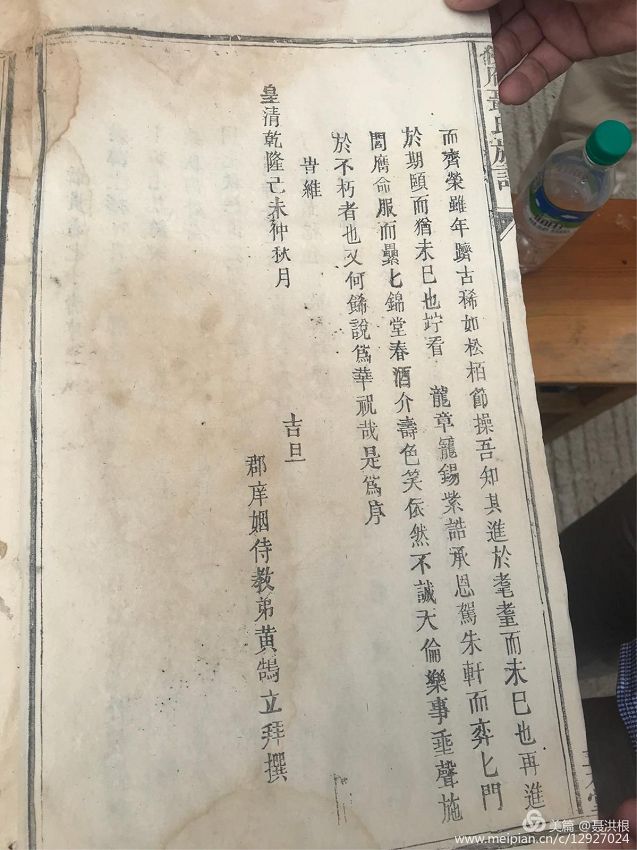 而齊榮雖年躋古稀如松栢節操吾知其進於耄耋而未已也再進
於期頤而猶未已也竚看　龍章寵錫紫誥承恩駕朱軒而奕匕門
閭膺命服而纍匕錦堂春酒介壽色笑依然不誠天倫樂事垂聲施
於不朽者也又何餙說爲華祝哉是爲序
旹維
皇清乾隆己未仲秋月
吉旦
郡庠姻侍教弟黃鵠立拜撰
氏族譜
美篇 @聂洪根
www.meipian.cn/c/12927024